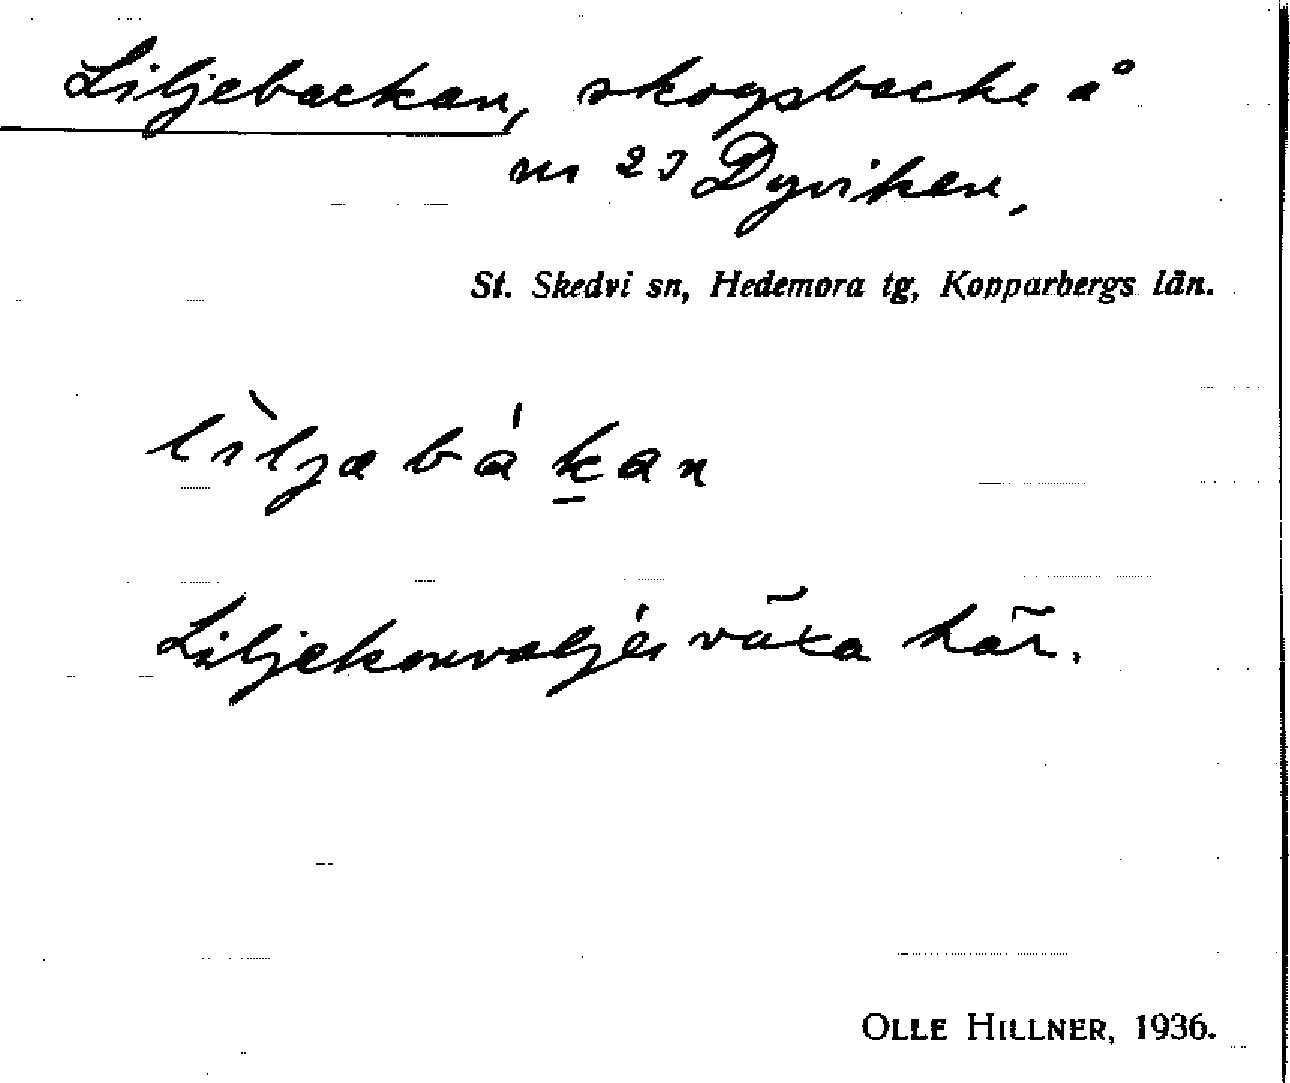 Liljebackan, skogsbacke å
nr 23 Dyviken.
St. Skedvi sn, Hedemora tg, Kopparbergs län.
lìljabákan
Liljekonvaljer växa här.
OLLE HILLNER, 1936.